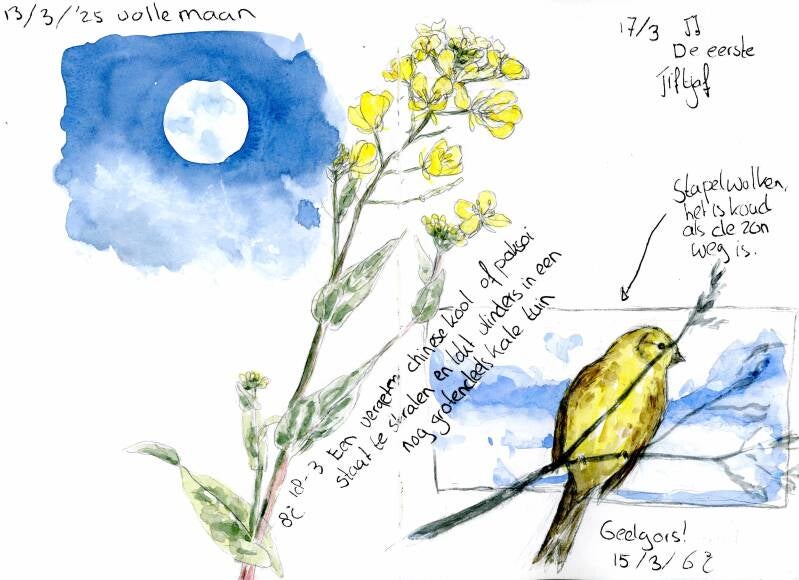 13/3/'25 volle maan
17/3 ♫
De eerste
Tjiftjaf
Stapelwolken,
het is koud
als de zon
weg is.
8°C 18-3 Een vergeten chinese kool of paksoi
staat te stralen en lokt vlinders in een
nog grotendeels kale tuin
Geelgors!
15/3/ 6°C